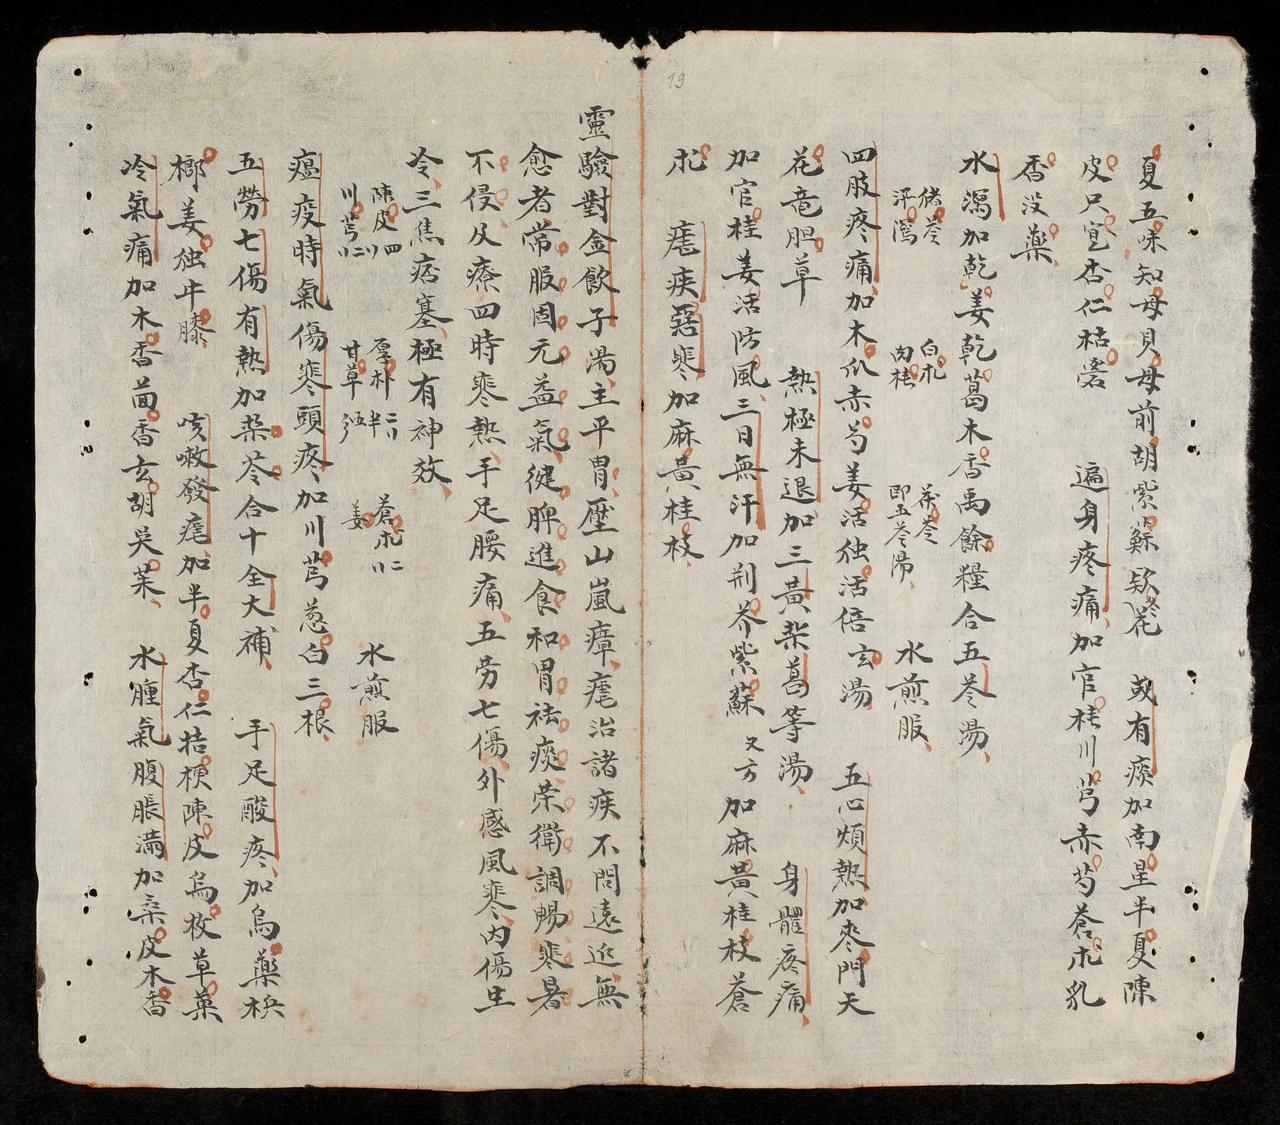 19
夏五味知母貝母前胡紫蘇欵花 或有痰加南星半夏陳
皮只宣杏仁桔梗 遍身疼痛加官桂川芎赤芍蒼朮乳
香没藥
水瀉加乾姜乾葛木香禹餘糧合五苓湯
猪苓 白朮 茯苓
澤瀉 肉桂 即五苓湯 水煎服
四肢疼痛加木瓜赤芍姜活独活倍玄湯 五心煩熱加麥門天
花竜胆草 熱極未退加三黄柴葛等湯 身體疼痛
加官桂姜活防風三日無汗加荆芥紫蘇 又方 加麻黄桂枝蒼
朮 瘧疾惡寒加麻黄桂枝
靈驗對金飲子湯主平胃壓山嵐瘴瘧治諸疾不問遠近無
愈者常服固元益氣健脾進食和胃祛痰荣衛調暢寒暑
不侵及療四時寒熱手足腰痛五劳七傷外感風寒内傷生
冷三焦痞塞極有神效
陳皮四刂 厚朴二刂半 蒼朮二刂
川芎二刂 甘草五分 姜 水煎服
瘟疫時氣傷寒頭疼加川芎葱白三根
五勞七傷有熱加柴苓合十全大補 手足酸疼加烏藥梹
榔姜独牛膝 咳嗽發瘧加半夏杏仁桔梗陳皮烏枚草菓
冷氣痛加木香茴香玄胡吴茱 水腫氣腹脹满加桑皮木香